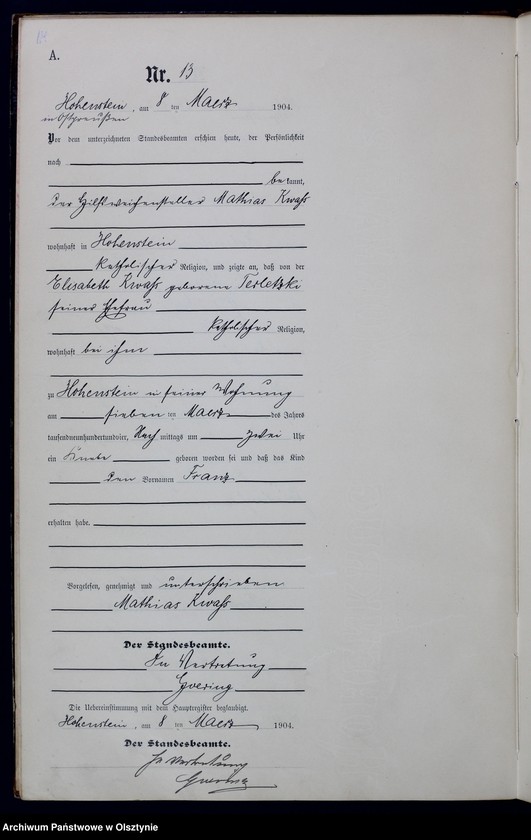 A.
Nr. 13
Hohenstein, am 8 ten Maerz 1904.
in Ostpreußen
Vor dem unterzeichneten Standesbeamten erschien heute, der Persönlichkeit
nach
bekannt,
der Hilfsweichensteller Mathias Kwaß
wohnhaft in Hohenstein
katholischer Religion, und zeigte an, daß von der
Elisabeth Kwaß geborene Terletzki
seiner Ehefrau
katholischer Religion,
wohnhaft bei ihm
zu Hohenstein in seiner Wohnung
am sieben ten Maerz des Jahres
tausendneunhundertundvier, Nach mittags um zwei Uhr
ein Knabe geboren worden sei und daß das Kind
den Vornamen Franz
erhalten habe.
Vorgelesen, genehmigt und unterschrieben
Mathias Kwaß
Der Standesbeamte.
In Vertretung
Goering
Die Uebereinstimmung mit dem Hauptregister beglaubigt.
Hohenstein, am 8 ten Maerz 1904.
Der Standesbeamte.
In Vertretung
Goering
Archiwum Państwowe w Olsztynie